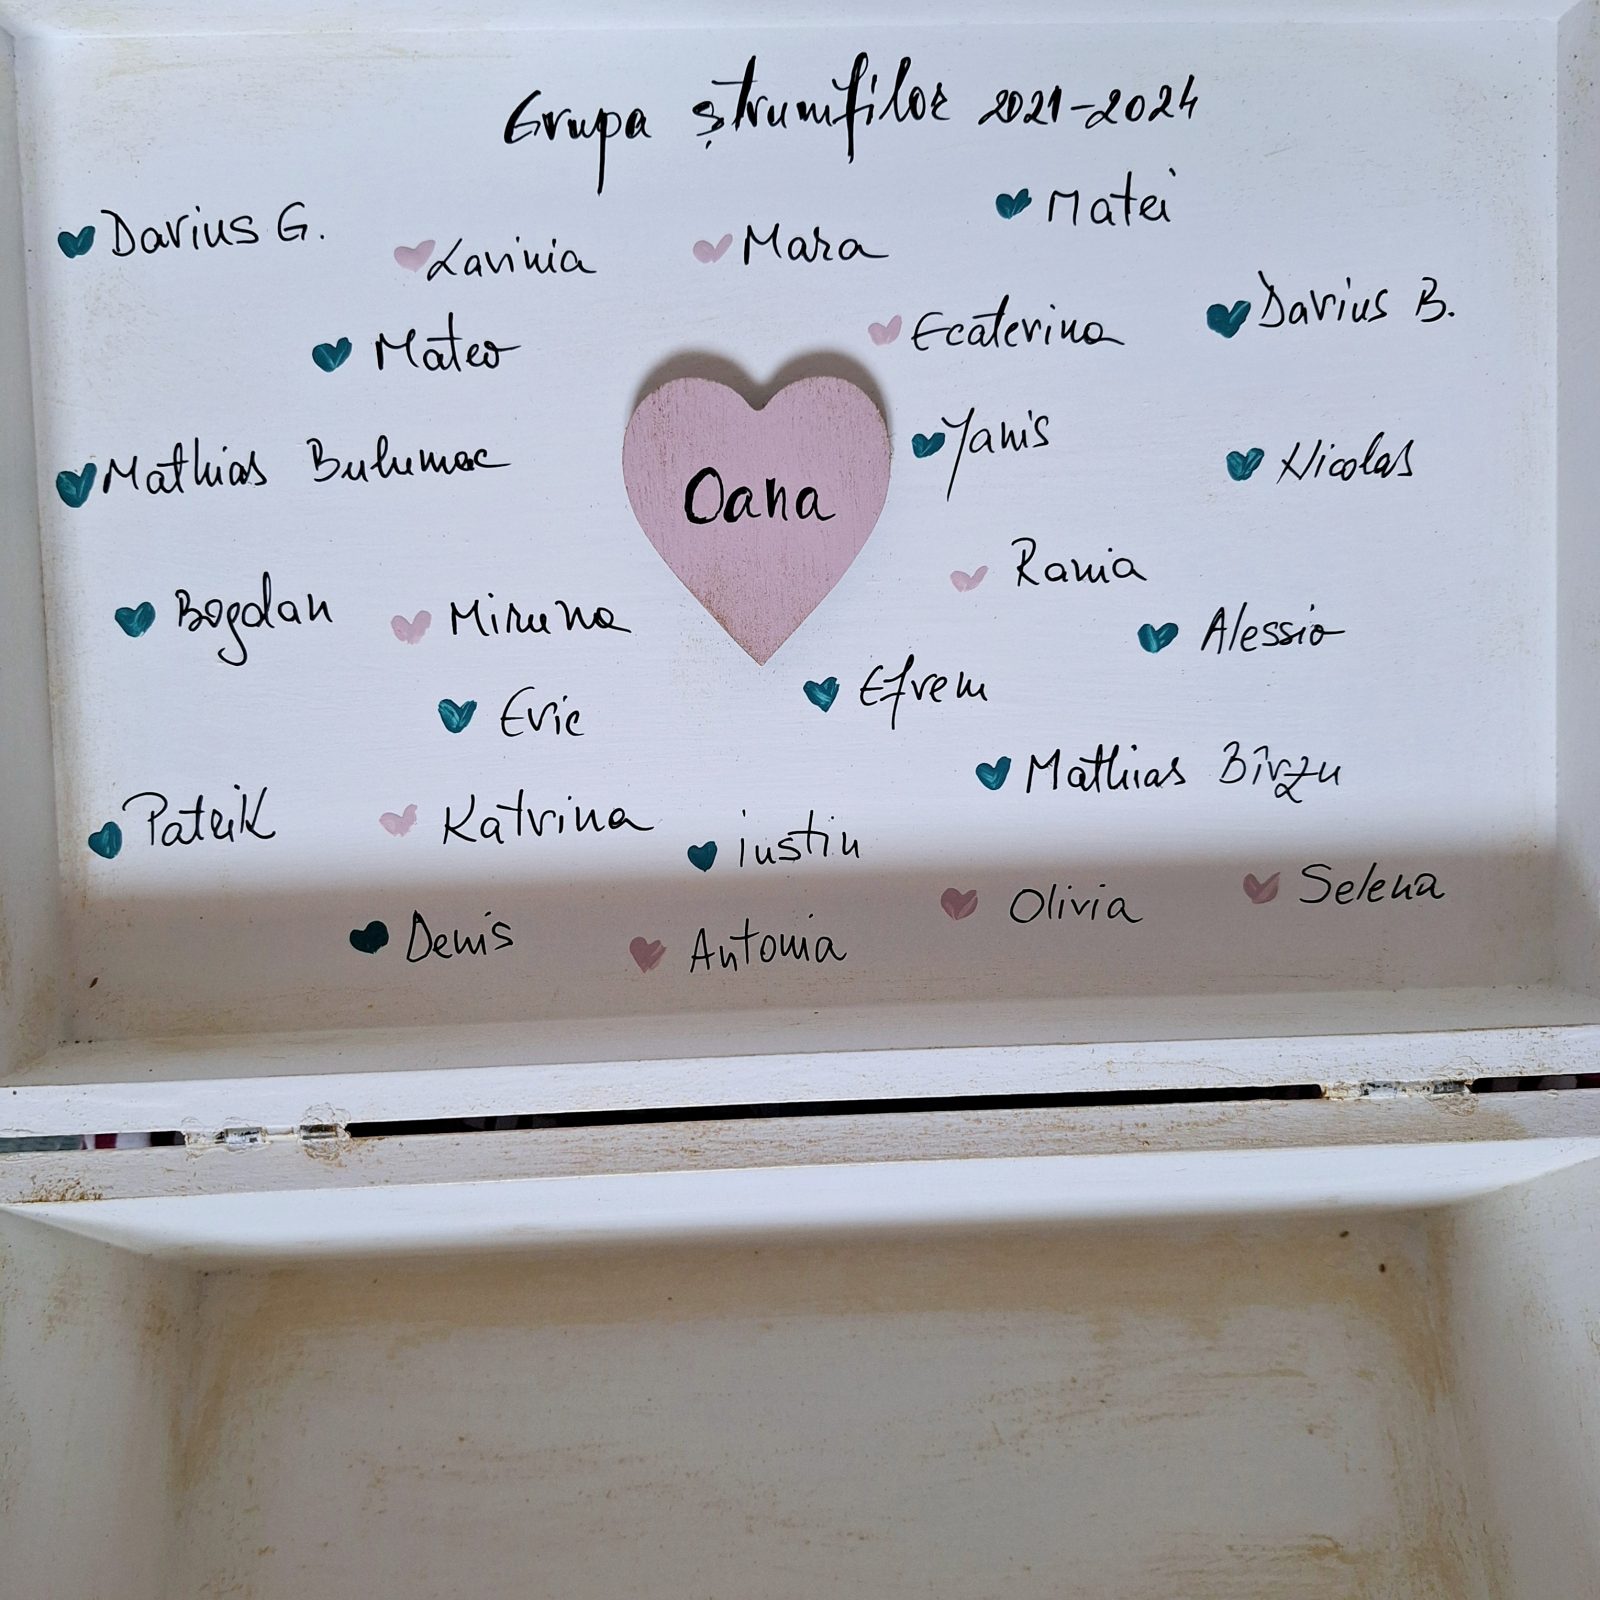 Grupa ștrumfilor 2021-2024
Matei
Darius G.
Lavinia
Mara
Darius B.
Mateo
Ecaterina
Mathias Bulumac
Yanis
Nicolas
Oana
Rania
Bogdan
Miruna
Alessio
Eric
Efrem
Mathias Bîrzu
Patrik
Katrina
iustin
Olivia
Selena
Denis
Antonia